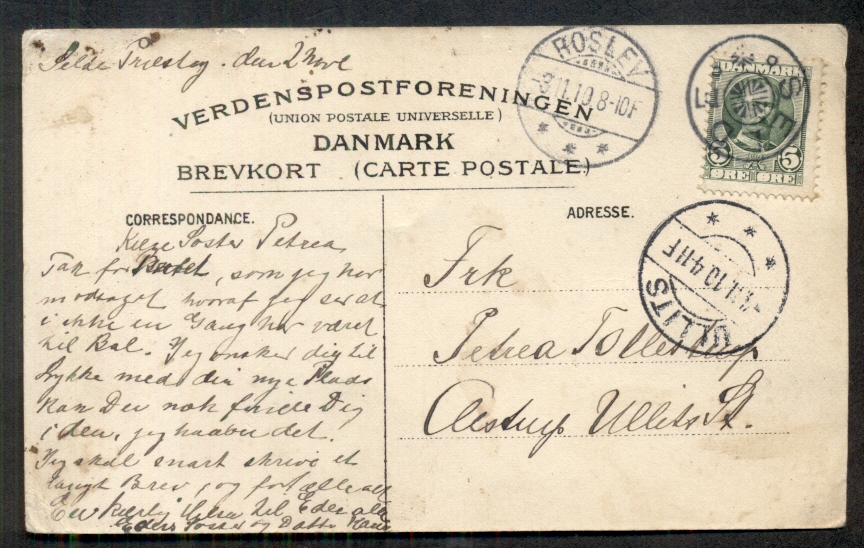 den 2 Nove
VERDENSPOSTFORENINGEN
(UNION POSTALE UNIVERSELLE)
DANMARK
BREVKORT (CARTE POSTALE.)
ROSLEV
3.11.10. 8-10F
DANMARK
5 5
ØRE ØRE
CORRESPONDANCE.
ADRESSE.
ULLITS
11.10 4-11F
Kære Søster Petrea
Tak for Brevet, som jeg har
modtaget hvoraf jeg ser at
i ikke en Gang har været
til Bal. Jeg ønsker dig til
lykke med din nye Plads
kan Du nok finde Dig
i den, jeg haaber det.
Jeg skal snart skrive et
langt Brev, og fortælle alt
En kærlig Hilsen til Eder alle
Eders Søster og Datter
Frk
Petrea Tollestrup
Aestrup Ullits St.